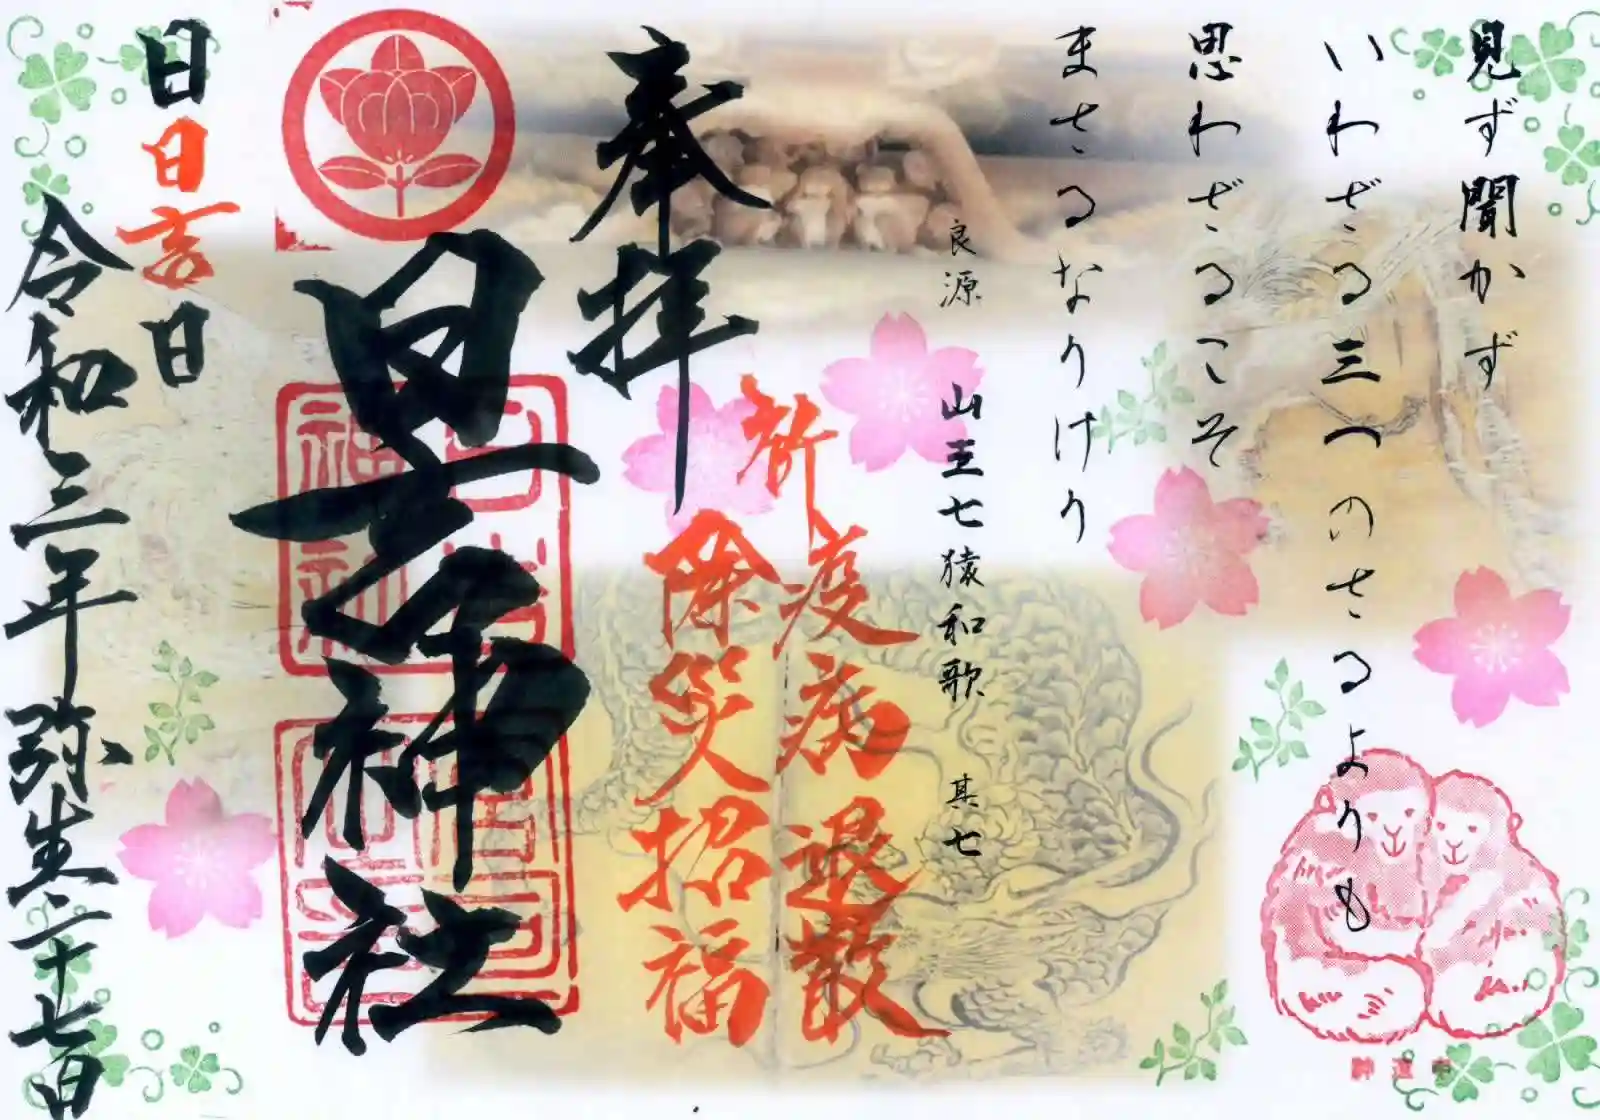 見ず聞かず
いわざる三つのさるよりも
思わざるこそ
まさるなりけり
良源 山王七猿和歌 其七
祈 疫病退散
除災招福
奉拝
日吉神社
日日吉日
令和三年弥生二十七日